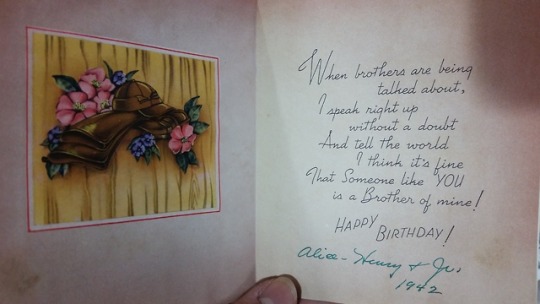 When brothers are being
talked about,
I speak right up
without a doubt
And tell the world
I think it's fine
That Someone like YOU
is a Brother of mine!
HAPPY
BIRTHDAY!
Alice - Henry + Jr.
1942